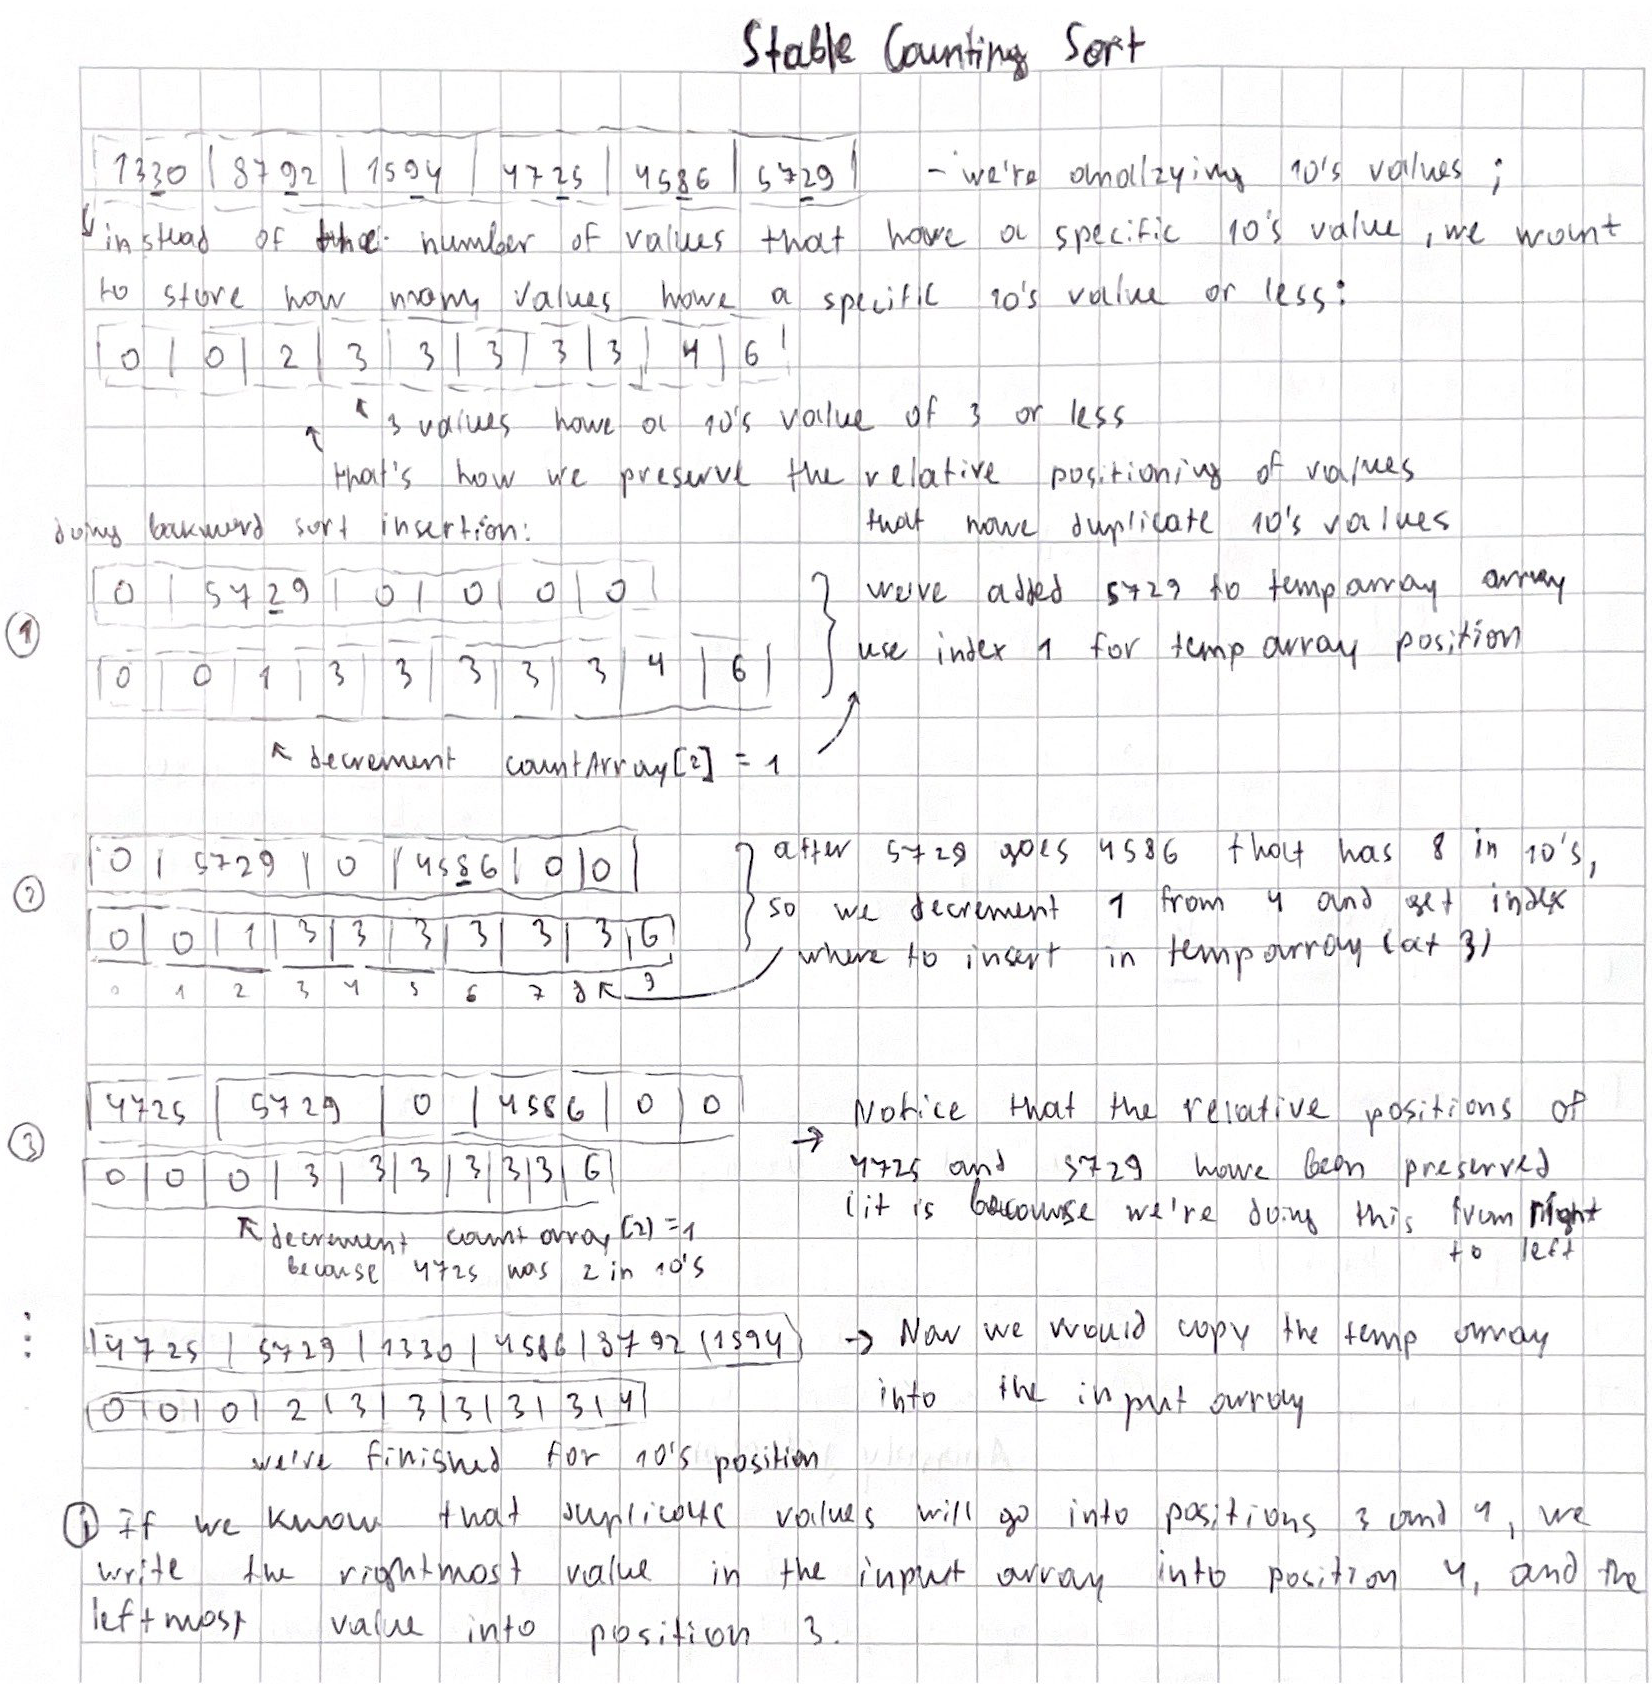 Stable Counting Sort
1330 | 8792 | 1594 | 4725 | 4586 | 5729 - we're analzying 10's values ;
instead of the number of values that have a specific 10's value, we want
to store how many values have a specific 10's value or less:
0 | 0 | 2 | 3 | 3 | 3 | 3 | 3 | 4 | 6
3 values have a 10's value of 3 or less
that's how we preserve the relative positioning of values
that have duplicate 10's values
doing backward sort insertion:
1
0 | 5729 | 0 | 0 | 0 | 0
0 | 0 | 1 | 3 | 3 | 3 | 3 | 3 | 4 | 6
we've added 5729 to temparray array
use index 1 for temp array position
decrement countArray[2] = 1
2
0 | 5729 | 0 | 4586 | 0 | 0
0 | 0 | 1 | 3 | 3 | 3 | 3 | 3 | 3 | 6
0 1 2 3 4 5 6 7 8 9
after 5729 goes 4586 that has 8 in 10's,
so we decrement 1 from 4 and get index
where to insert in temparray (at 3)
3
4725 | 5729 | 0 | 4586 | 0 | 0
0 | 0 | 0 | 3 | 3 | 3 | 3 | 3 | 3 | 6
decrement countarray[2]=1
because 4725 has 2 in 10's
→ Notice that the relative positions of
4725 and 5729 have been preserved
(it is because we're doing this from right
to left
4725 | 5729 | 1330 | 4586 | 8792 | 1594
0 | 0 | 0 | 2 | 3 | 3 | 3 | 3 | 3 | 4
→ Now we would copy the temp array
into the input array
we've finished for 10's position
i If we know that duplicate values will go into positions 3 and 4, we
write the rightmost value in the input array into position 4, and the
leftmost value into position 3.